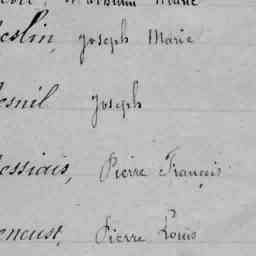 Marie
eslin, Joseph Marie
esnil Joseph
essiais, Pierre François
eneust, Pierre Louis